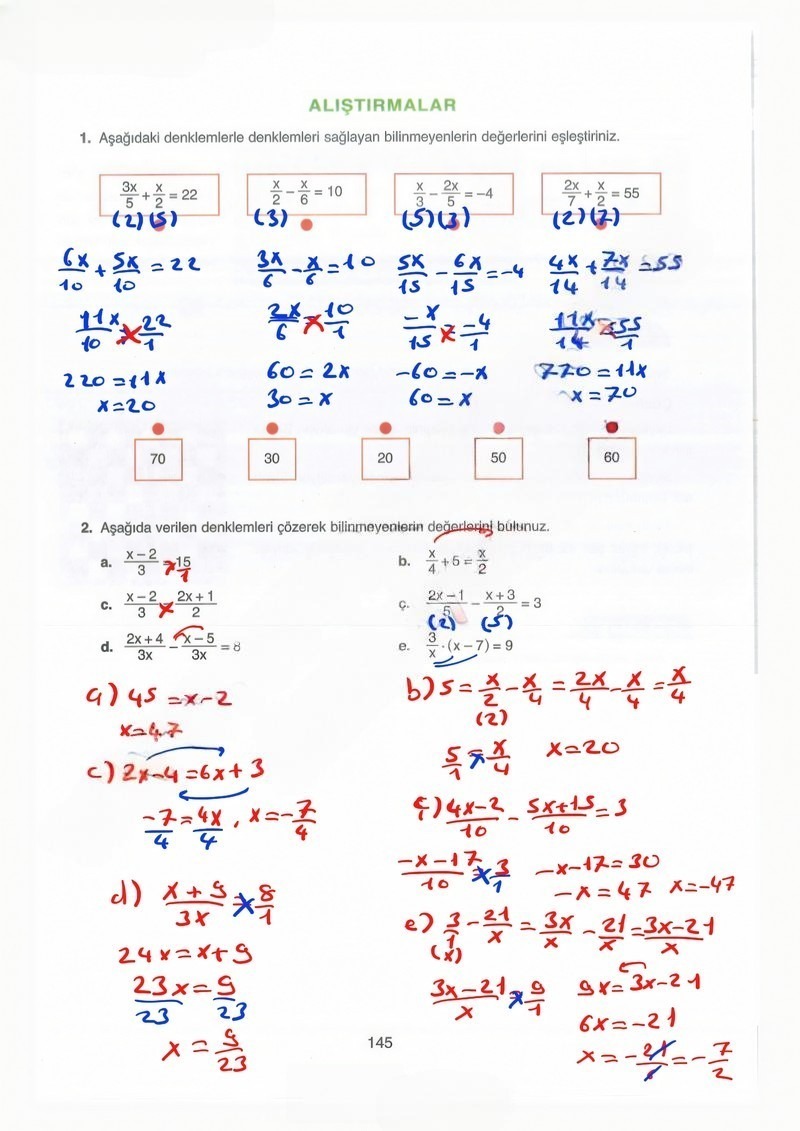 ALIŞTIRMALAR
1. Aşağıdaki denklemlerle denklemleri sağlayan bilinmeyenlerin değerlerini eşleştiriniz.
3x/5 + x/2 = 22    x/2 − x/6 = 10    x/3 − 2x/5 = −4    2x/7 + x/2 = 55
(2) (5)    (3)    (5) (3)    (2) (7)
6x/10 + 5x/10 = 22    3x/6 − x/6 = 10    5x/15 − 6x/15 = −4    4x/14 + 7x/14 = 55
11x/10 = 22/1    2x/6 = 10/1    −x/15 = −4/1    11x/14 = 55/1
220 = 11x    60 = 2x    −60 = −x    770 = 11x
x = 20    30 = x    60 = x    x = 70
70    30    20    50    60
2. Aşağıda verilen denklemleri çözerek bilinmeyenlerin değerlerini bulunuz.
a. x − 2/3 = 15/1    b. x/4 + 5 = x/2
c. x − 2/3 = 2x + 1/2    ç. 2x − 1/5 − x + 3/2 = 3
(2) (5)
d. 2x + 4/3x − x − 5/3x = 8    e. 3/x · (x − 7) = 9
a) 45 = x − 2
x = 47
b) 5 = x/2 − x/4 = 2x/4 − x/4 = x/4
(2)
5/1 = x/4    x = 20
c) 2x − 4 = 6x + 3
−7/4 = 4x/4, x = −7/4
ç) 4x − 2/10 − 5x + 15/10 = 3
−x − 17/10 = 3/1    −x − 17 = 30
−x = 47    x = −47
d) x + 9/3x = 8/1
24x = x + 9
23x/23 = 9/23
x = 9/23
e) 3/1 − 21/x = 3x/x − 21/x = 3x − 21/x
(x)
3x − 21/x = 9/1    9x = 3x − 21
6x = −21
x = −21/6 = −7/2
145